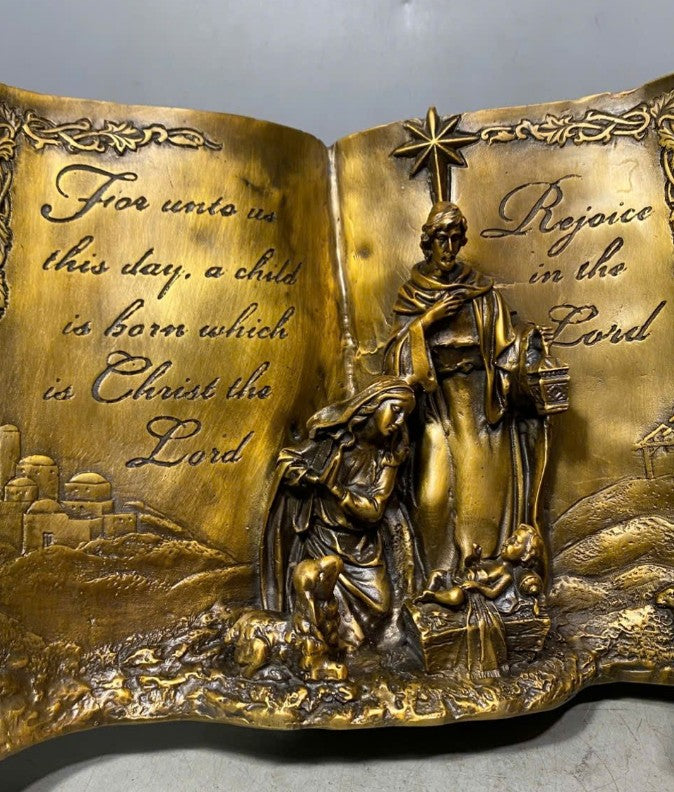 For unto us
this day, a child
is born which
is Christ the
Lord
Rejoice
in the
Lord